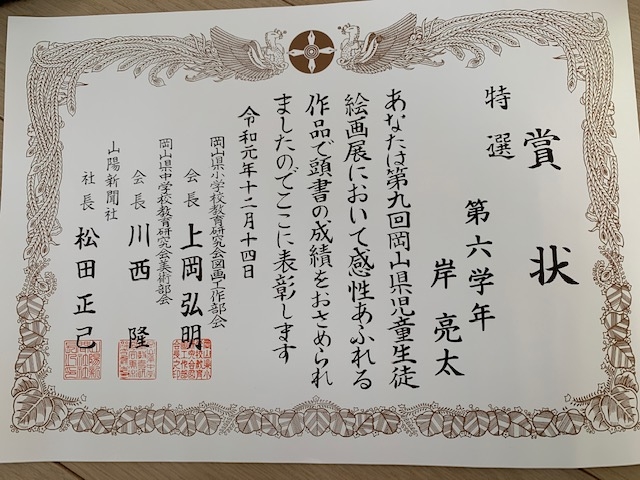 賞状
特選
第六学年
岸亮太
あなたは第九回岡山県児童生徒
絵画展において感性あふれる
作品で頭書の成績をおさめられ
ましたのでここに表彰します
令和元年十二月十四日
岡山県小学校教育研究会図画工作部会
会長 上岡弘明
岡山県中学校教育研究会美術部会
会長 川西隆
山陽新聞社
社長 松田正己